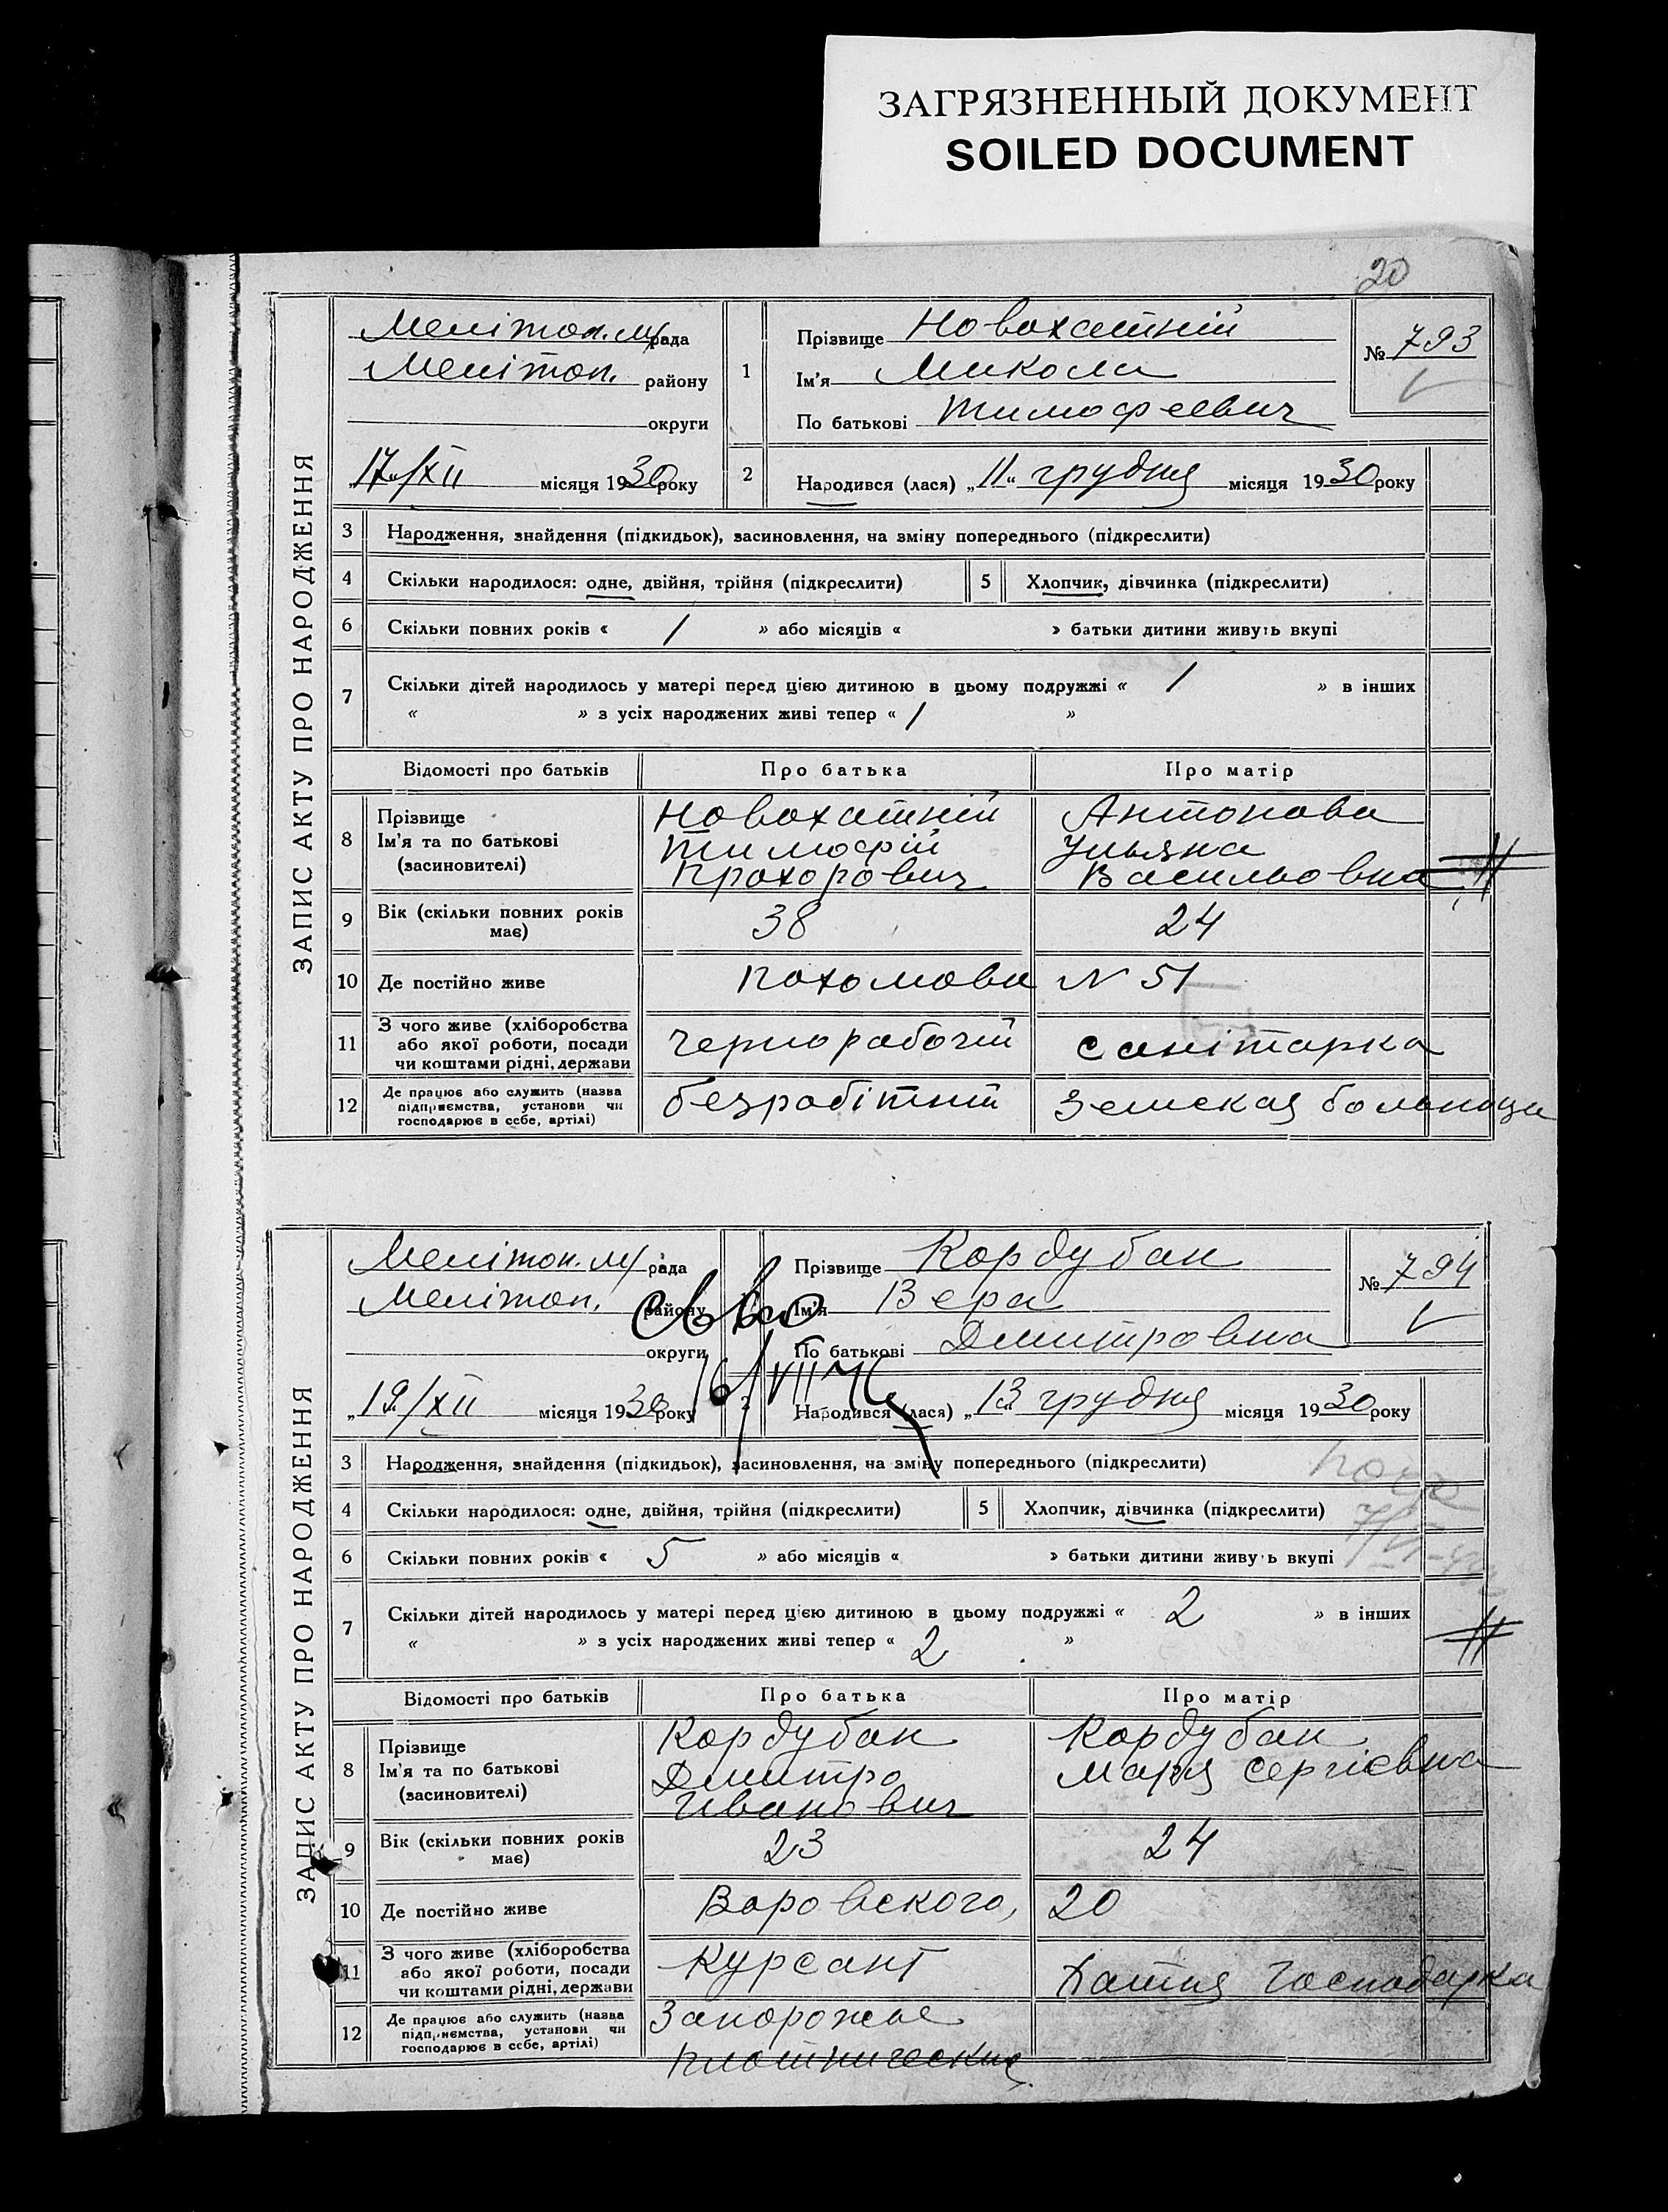 ЗАГРЯЗНЕННЫЙ ДОКУМЕНТ
SOILED DOCUMENT
20
ЗАПИС АКТУ ПРО НАРОДЖЕННЯ
Мелітоп. м/рада
Мелітоп. району
округи
„17“/XII місяця 1930 року
1
Прізвище Новохатній
Ім'я Микола
По батькові Тимофеевич
№ 793
2
Народився (лася) „11“ грудня місяця 1930 року
3 Народження, знайдення (підкидьок), засиновлення, на зміну попереднього (підкреслити)
4 Скільки народилося: одне, двійня, трійня (підкреслити) 5 Хлопчик, дівчинка (підкреслити)
6 Скільки повних років « 1 » або місяців « » батьки дитини живуть вкупі
7 Скільки дітей народилось у матері перед цією дитиною в цьому подружжі « 1 » в інших
« » з усіх народжених живі тепер « 1 »
Відомості про батьків Про батька Про матір
8 Прізвище Ім'я та по батькові (засновителі)
Новохатній Тимофій Прохорович
Антонова Ульяна Васильовна
9 Вік (скільки повних років має) 38 24
10 Де постійно живе Пахомова N 51
11 З чого живе (хліборобства або якої роботи, посади чи коштами рідні, держави
чернорабочий санітарка
12 Де працює або служить (назва підприємства, установи чи господарює в себе, артілі)
безробітний Земская больница
ЗАПИС АКТУ ПРО НАРОДЖЕННЯ
Мелітоп. м/рада
Мелітоп. району
округи
„19“/XII місяця 1930 року
Прізвище Кордубан
Ім'я Вера
По батькові Дмитровна
№ 794
16/VII
2
Народився (лася) „13“ грудня місяця 1930 року
3 Народження, знайдення (підкидьок), засиновлення, на зміну попереднього (підкреслити)
4 Скільки народилося: одне, двійня, трійня (підкреслити) 5 Хлопчик, дівчинка (підкреслити)
6 Скільки повних років « 5 » або місяців « » батьки дитини живуть вкупі
7 Скільки дітей народилось у матері перед цією дитиною в цьому подружжі « 2 » в інших
« » з усіх народжених живі тепер « 2 »
Відомості про батьків Про батька Про матір
8 Прізвище Ім'я та по батькові (засиновителі)
Кордубан Дмитро Иванович
Кордубан Мария Сергієвна
9 Вік (скільки повних років має) 23 24
10 Де постійно живе Воровского, 20
11 З чого живе (хліборобства або якої роботи, посади чи коштами рідні, держави
Курсант Хатня господарка
12 Де працює або служить (назва підприємства, установи чи господарює в себе, артілі)
Запорожье